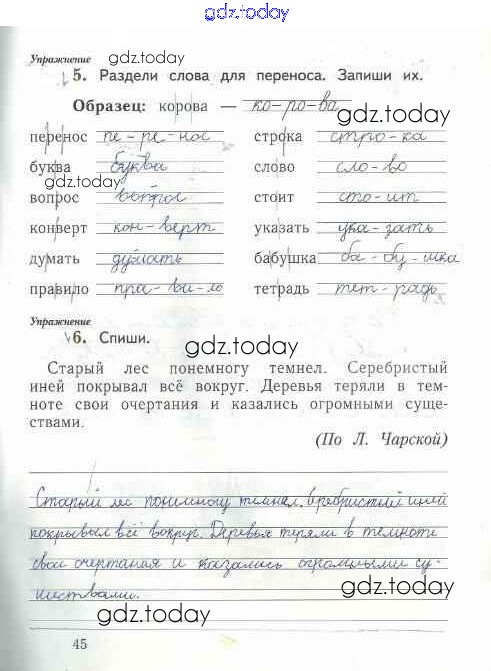 gdz.today
Упражнение gdz.today
5. Раздели слова для переноса. Запиши их.
Образец: корова — ко-ро-ва
gdz.today
перенос пе-ре-нос строка стро-ка
буква буква слово сло-во
gdz.today
вопрос вопрос стоит сто-ит
конверт кон-верт указать ука-зать
думать думать бабушка ба-бу-шка
правило пра-ви-ло тетрадь тет-радь
Упражнение
6. Спиши.
gdz.today
Старый лес понемногу темнел. Серебристый
иней покрывал всё вокруг. Деревья теряли в тем-
ноте свои очертания и казались огромными суще-
ствами.
(По Л. Чарской)
gdz.today
Старый лес понимногу темнел. иний
покрывыл всё вокруг. Деревья теряли в темноте
свои очертаная и казались огромными су-
ществами.
gdz.today
gdz.today
45